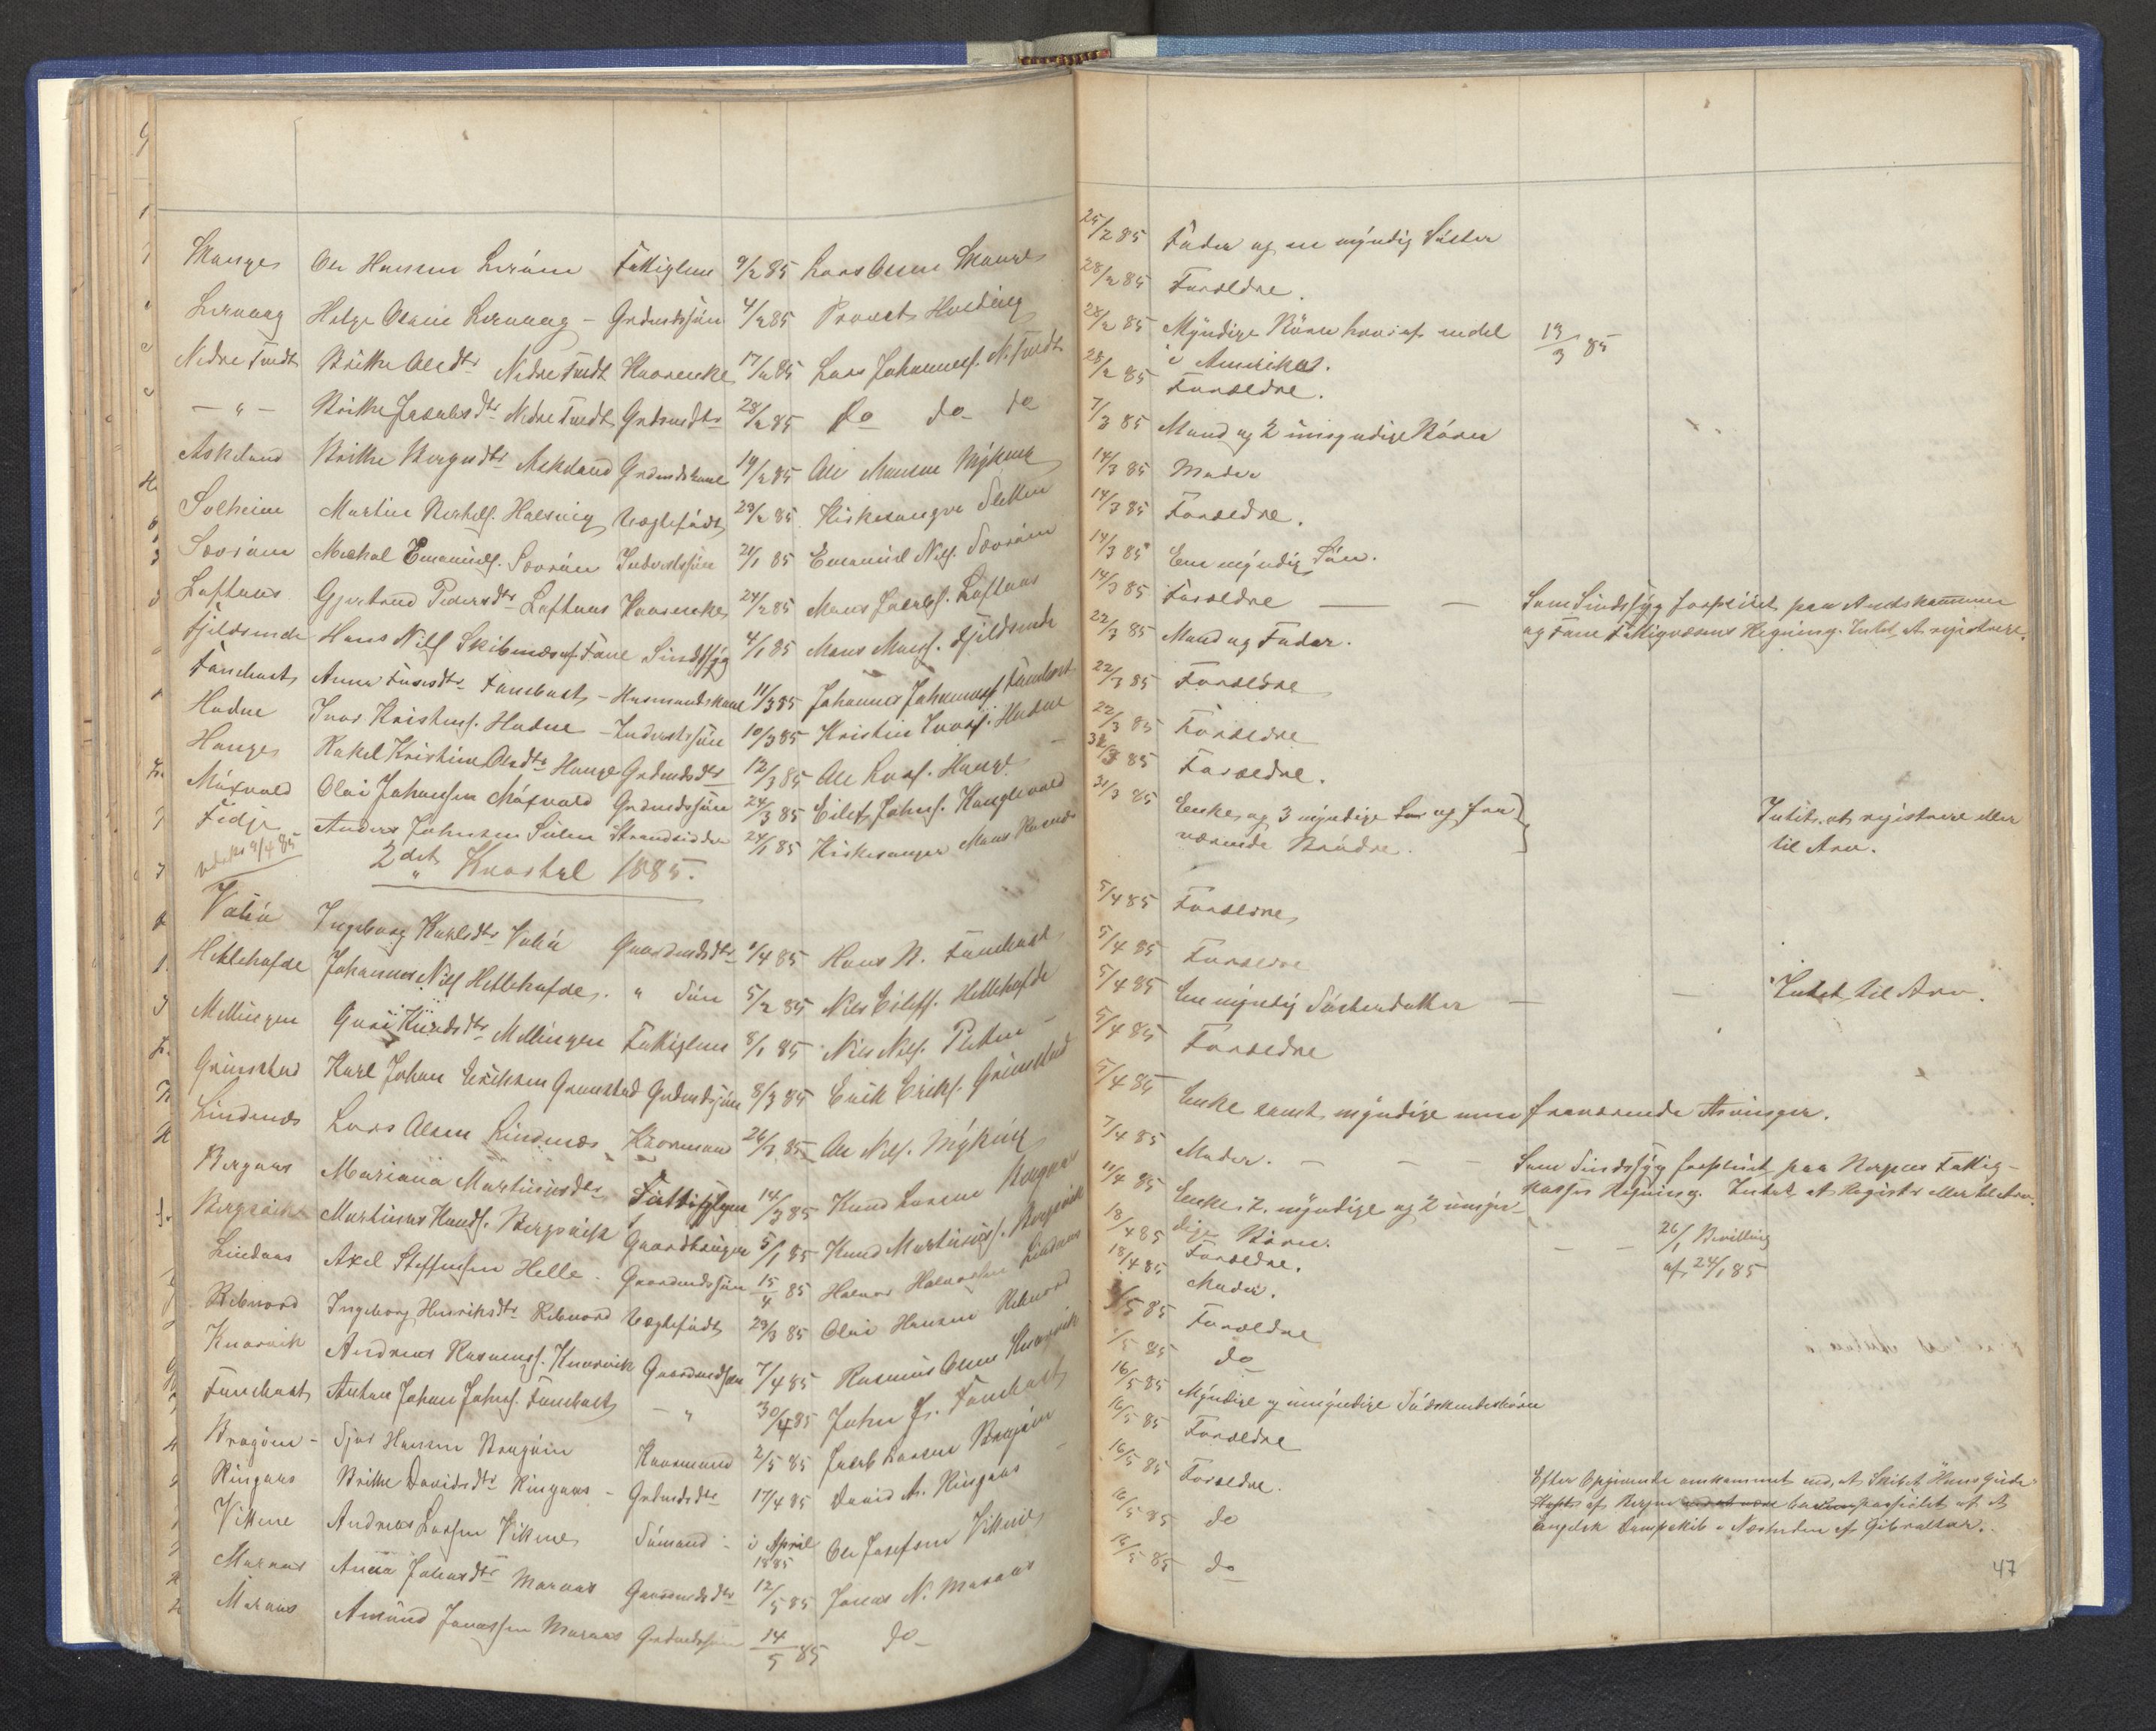 Mange Ole Hansen Lerøen Fattiglem 9/2 85 Lars Olsen Mange
Lervaag Helge Olsen Lervaag - Grdmdssøn 4/2 85 Provst Holding
Nedre Tvedt Brithe Olsdtr Nedre Tvedt Kaarenke 17/2 85 Lars Johanness. N. Tvedt
— " — Brithe Jacobsdtr Nedre Tvedt Grdmdsdtr 28/2 85 Do do do
Askeland Brithe Børgesdtr Askeland Grdmdskone 19/2 85 Ole Monsen Myking
Solheim Martin Halsvig Uægtefødt 23/2 85 Kirkesanger Sletten
Sævrøen Mikal Emanuels. Sævrøen Inderstssøn 21/1 85 Emanuel Nils. Sævrøen
Loftaas Gjertrud Pedersdtr Loftaas Kaarenke 24/2 85 Mons Jacobs. Loftaas
Fjeldsende Hans Nilss Skibenæs af Fane Sindssyg 4/1 85 Mons Monss. Fjeldsende
Fanebust Anna Dtr Fanebust - Husmandskone 11/3 85 Johannes Johanness Fanebust
Hodne Ivar Kristens. Hodne - Inderstssøn 10/3 85 Kristen Ivars. Hodne
Hauge Rakel Kristine Olsdtr Hauge Grdmdsdtr 12/3 85 Ole Lars. Hauge
Møxvold Olai Johansen Møxvold Grdmdssøn 24/3 85 Eilef Johns. Hauglevold
Fedje Anders Johnsen Sulen Strandsidder 24/1 85 Kirkesanger Mons
9/4 85 2det Kvartal 1885.
Vabø Ingeborg Karlsdtr Vabø Gaardmdsdtr 1/4 85 Hans N. Fanebust
Hetlehofde Johannes Nilss Hetlehofde. " Søn 5/2 85 Nils Eilefs. Hetlehofde
Mellingen Guri Knudsdtr Mellingen Fattiglem 8/1 85 Nils Nils. Pletten
Grimstad Karl Johan Eriksen Grimstad Grdmdssøn 8/3 85 Erik Eriks. Grimstad
Lindenæs Lars Olsen Lindenæs Kaarmand 26/3 85 Ole Nils. Myking
Bergaas Mariana Martinusdtr Fattiglem 14/3 85 Knud Larsen Bergaas
Bergsvik Martinus Knuds. Bergsvik Gaardbruger 5/1 85 Knud Martinuss. Bergsvik
Lindaas Axel Steffensen Helle - Gaardmdssøn 15/4 85 Halvor Halvorsen Lindaas
Rebnord Ingeborg Henriksdtr Rebnord Uægtefødt 23/3 85 Olai Hansen Rebnord
Knarvik Andreas Rasmuss. Knarvik Gaardmdssøn 7/4 85 Rasmus Olsen Knarvik
Fanebust Anton Johan Johns. Fanebust — " 30/4 85 John Js. Fanebust
Bragøen - Sjur Hansen Bragøen Kaarmand 2/5 85 Jacob Larsen Bragøen
Ringaas Brithe Davidsdtr Ringaas - Grdmdsdtr 17/4 85 David A. Ringaas
Vikene Andreas Larsen Vikene Sømand - i April 1885 Ole Josefsen Vikene
Maraas Anna Johnsdtr Maraas Gaardmdsdtr 12/5 85 Jonas N. Maraas
Maraas Amund Jonassen Maraas Grdmdssøn 14/5 85 do
25/2 85 Fader og en myndig Søster
28/2 85 Forældre.
28/2 85 Myndige Børn hvoraf endel i Amerika. 13/3 85
28/2 85 Forældre.
7/3 85 Mand og 2 umyndige Børn
14/3 85 Moder
14/3 85 Forældre.
14/3 85 Een myndig Søn.
14/3 85 Forældre — — Som Sindssyg forpleiet paa Amtskommunen
og Fane Fattigvæsens Regning. Intet at registrere.
22/3 85 Mand og Fader.
22/3 85 Forældre
22/3 85 Forældre
31/3 85 Forældre.
31/3 85 Enke, og 3 myndige og fra
værende Brødre. Intet at registrere eller
til Arv.
5/4 85 Forældre
5/4 85 Forældre
5/4 85 En myndig Søsterdatter — — Intet til Arv.
5/4 85 Forældre
5/4 85 Enke samt myndige men fraværende Arvinger.
7/4 85 Moder. — — — Som Sindssyg forpleiet paa Bergens Fattig-
kasses Regning. Intet at Registr. eller til Arv.
11/4 85 Enke, 2 myndige og 2 umyn-
dige Børn. — — 26/1 Bevilling
af 24/1 85
18/4 85 Forældre.
18/4 85 Moder.
1/5 85 Forældre
1/5 85 do
16/5 85 Myndige og umyndige Sødskendebørn
16/5 85 Forældre
16/5 85 Forældre. Efter Opgivende omkommet ved, at Skibet "Hans Gude"
af Bergen blev paaseilet af et
engelsk Dampskib i Nærheden af Gibraltar.
16/5 85 do
16/5 85 do
47